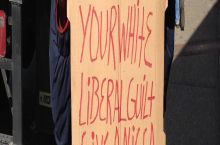 YOUR WHITE
LIBERAL GUILT